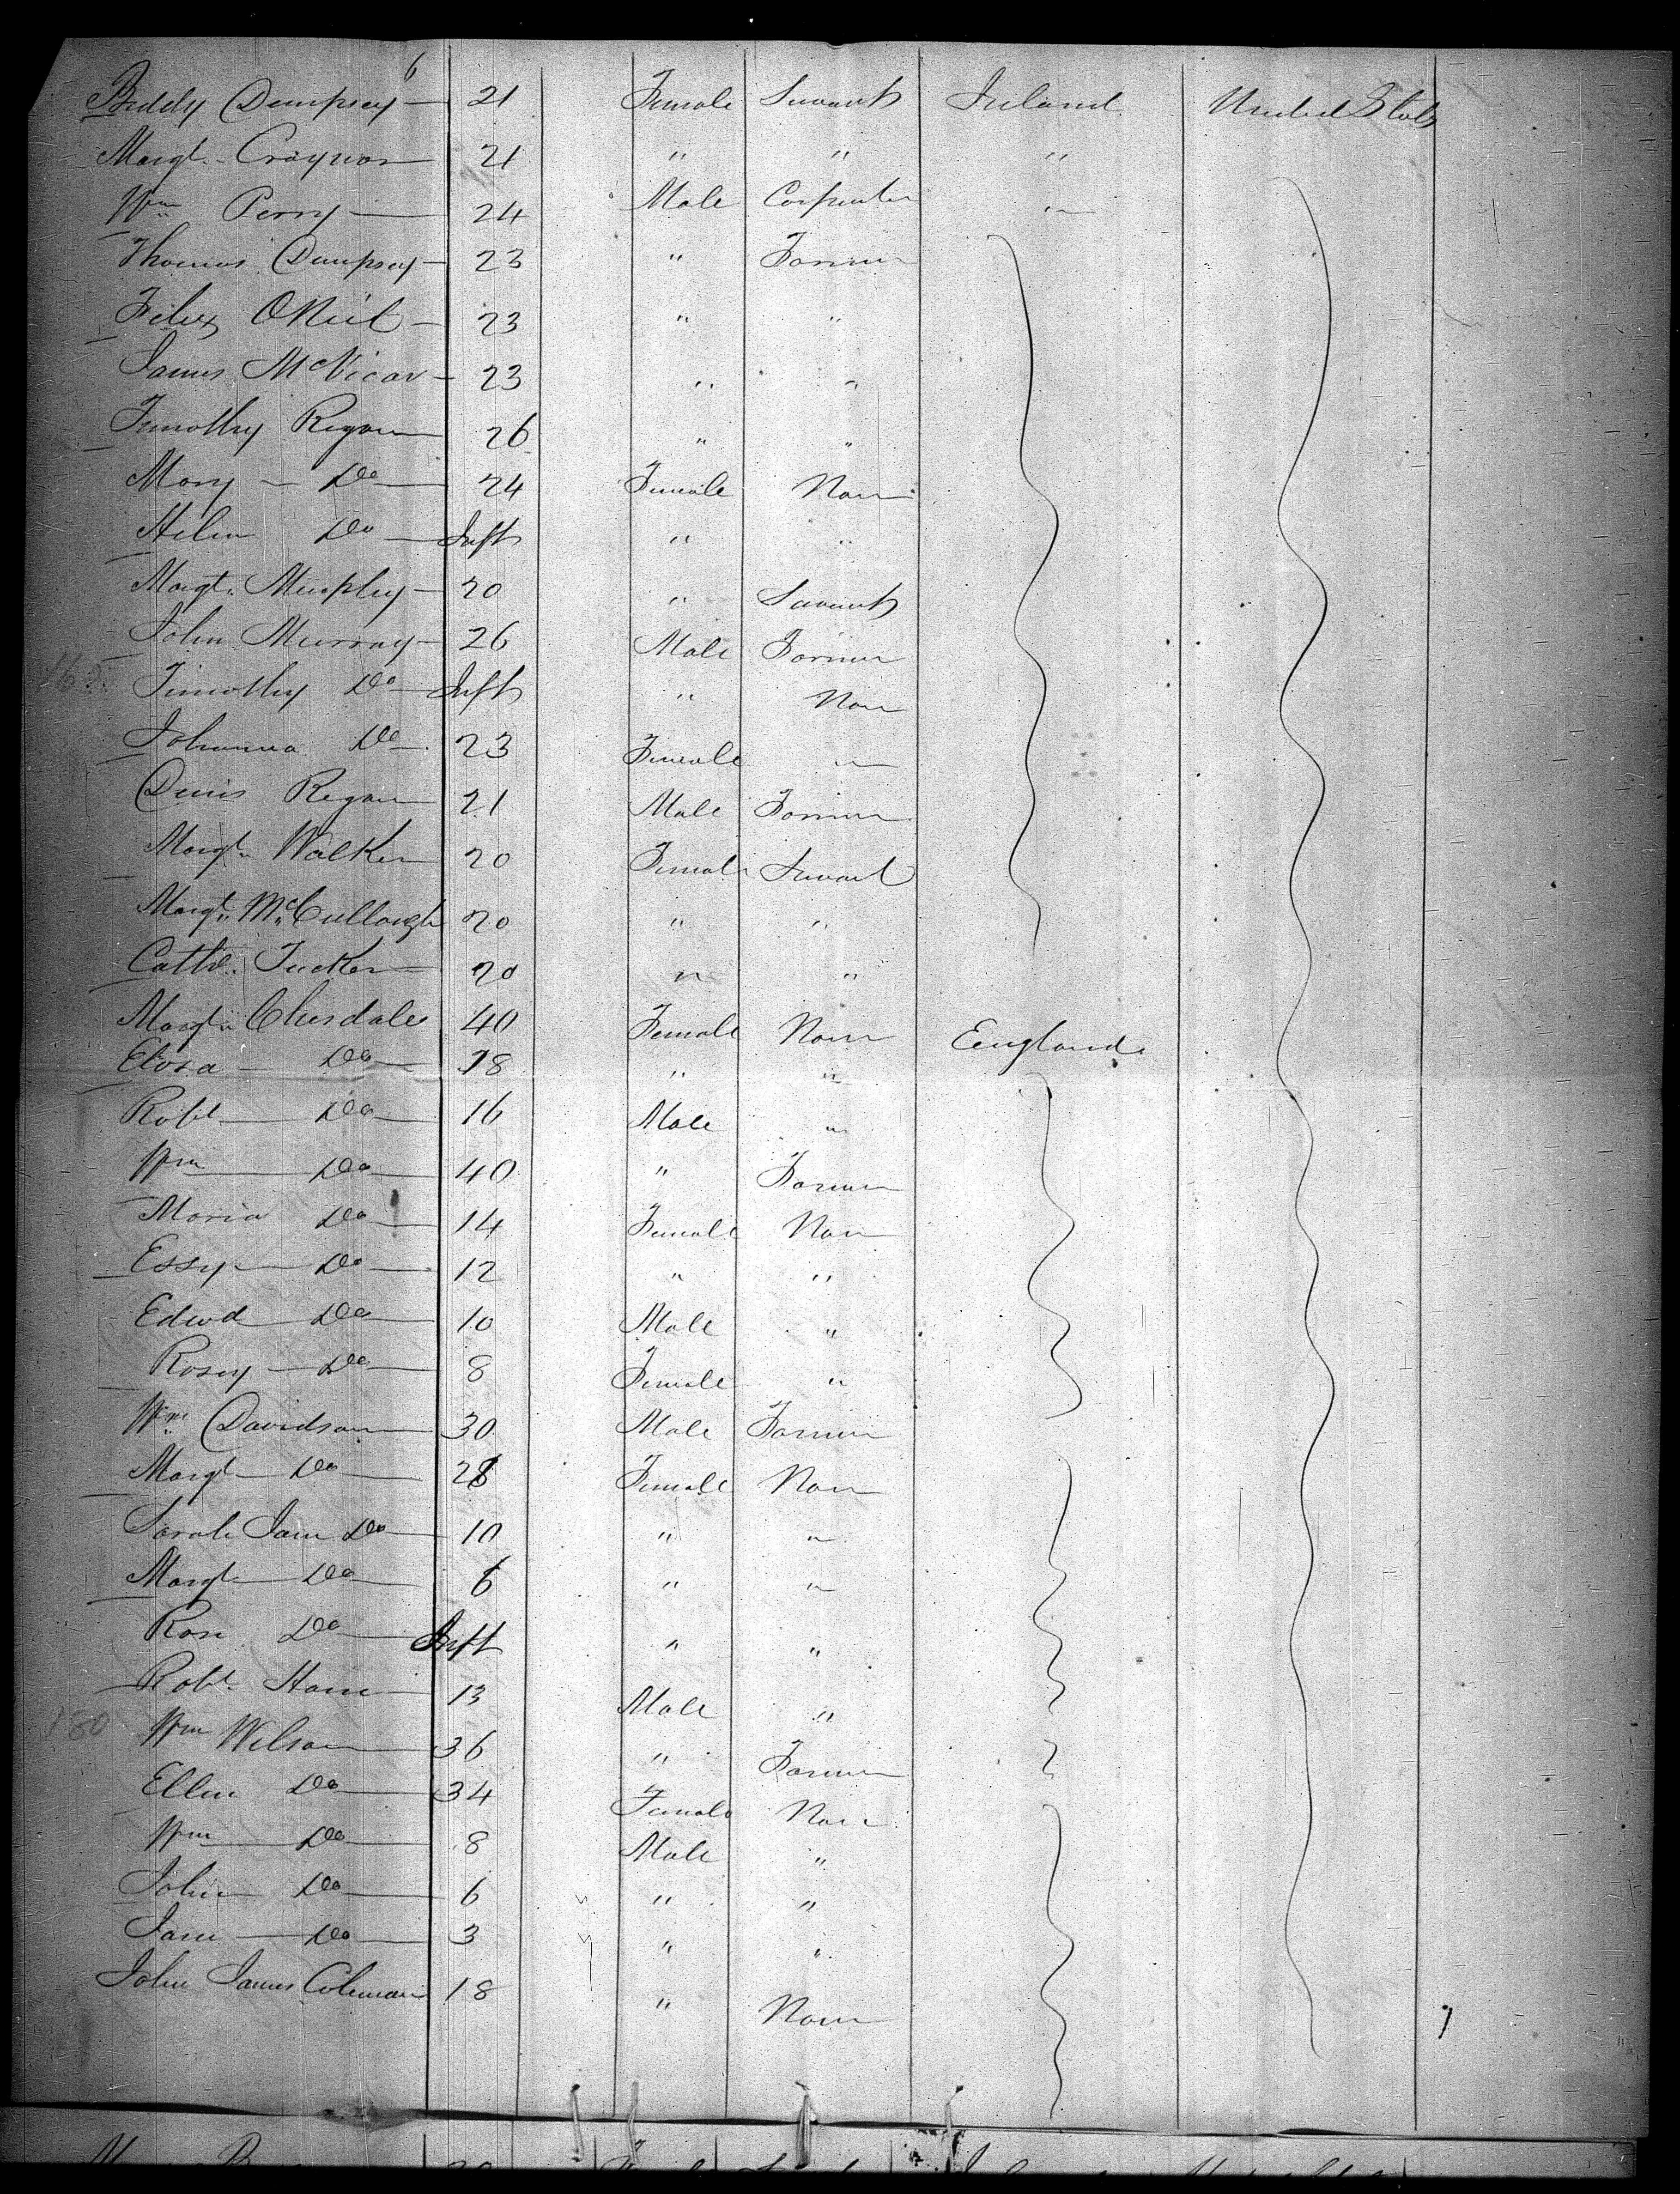 6
Biddy Dempsey 21 Female Servant Ireland United States
Margt. 21 " " "
Wm Perry 24 Male Carpenter "
Thomas Dempsey 23 " Farmer
Felix ONeil 23 " "
James McVicar 23 " "
Timothy Regan 26 " "
Mary Do 24 Female None
Helen Do Inft " "
Margt. Murphy 20 " Servant
John Murray 26 Male Farmer
Timothy Do Inft " None
Johanna Do 23 Female "
Denis Regan 21 Male Farmer
Margt. Walker 20 Female Servant
Margt. McCullough 20 " "
Cathe. Tucker 20 " "
Margt. Chesdale 40 Female None England
Do 18 " "
Robt Do 16 Male "
Wm Do 40 " Farmer
Maria Do 14 Female None
Essy Do 12 " "
Edwd Do 10 Male "
Rosey Do 8 Female "
Wm Davidson 30 Male Farmer
Margt Do 28 Female None
Sarah Jane Do 10 " "
Margt Do 6 " "
Rose Do Inft " "
Robt. 13 Male "
180 Wm Wilson 36 " Farmer
Ellen Do 34 Female None
Wm Do 8 Male "
John Do 6 " "
Jane Do 3 " "
John James Coleman 18 " None